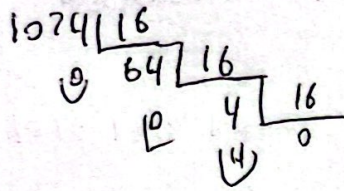 1024 16
0 64 16
0 4 16
4 0